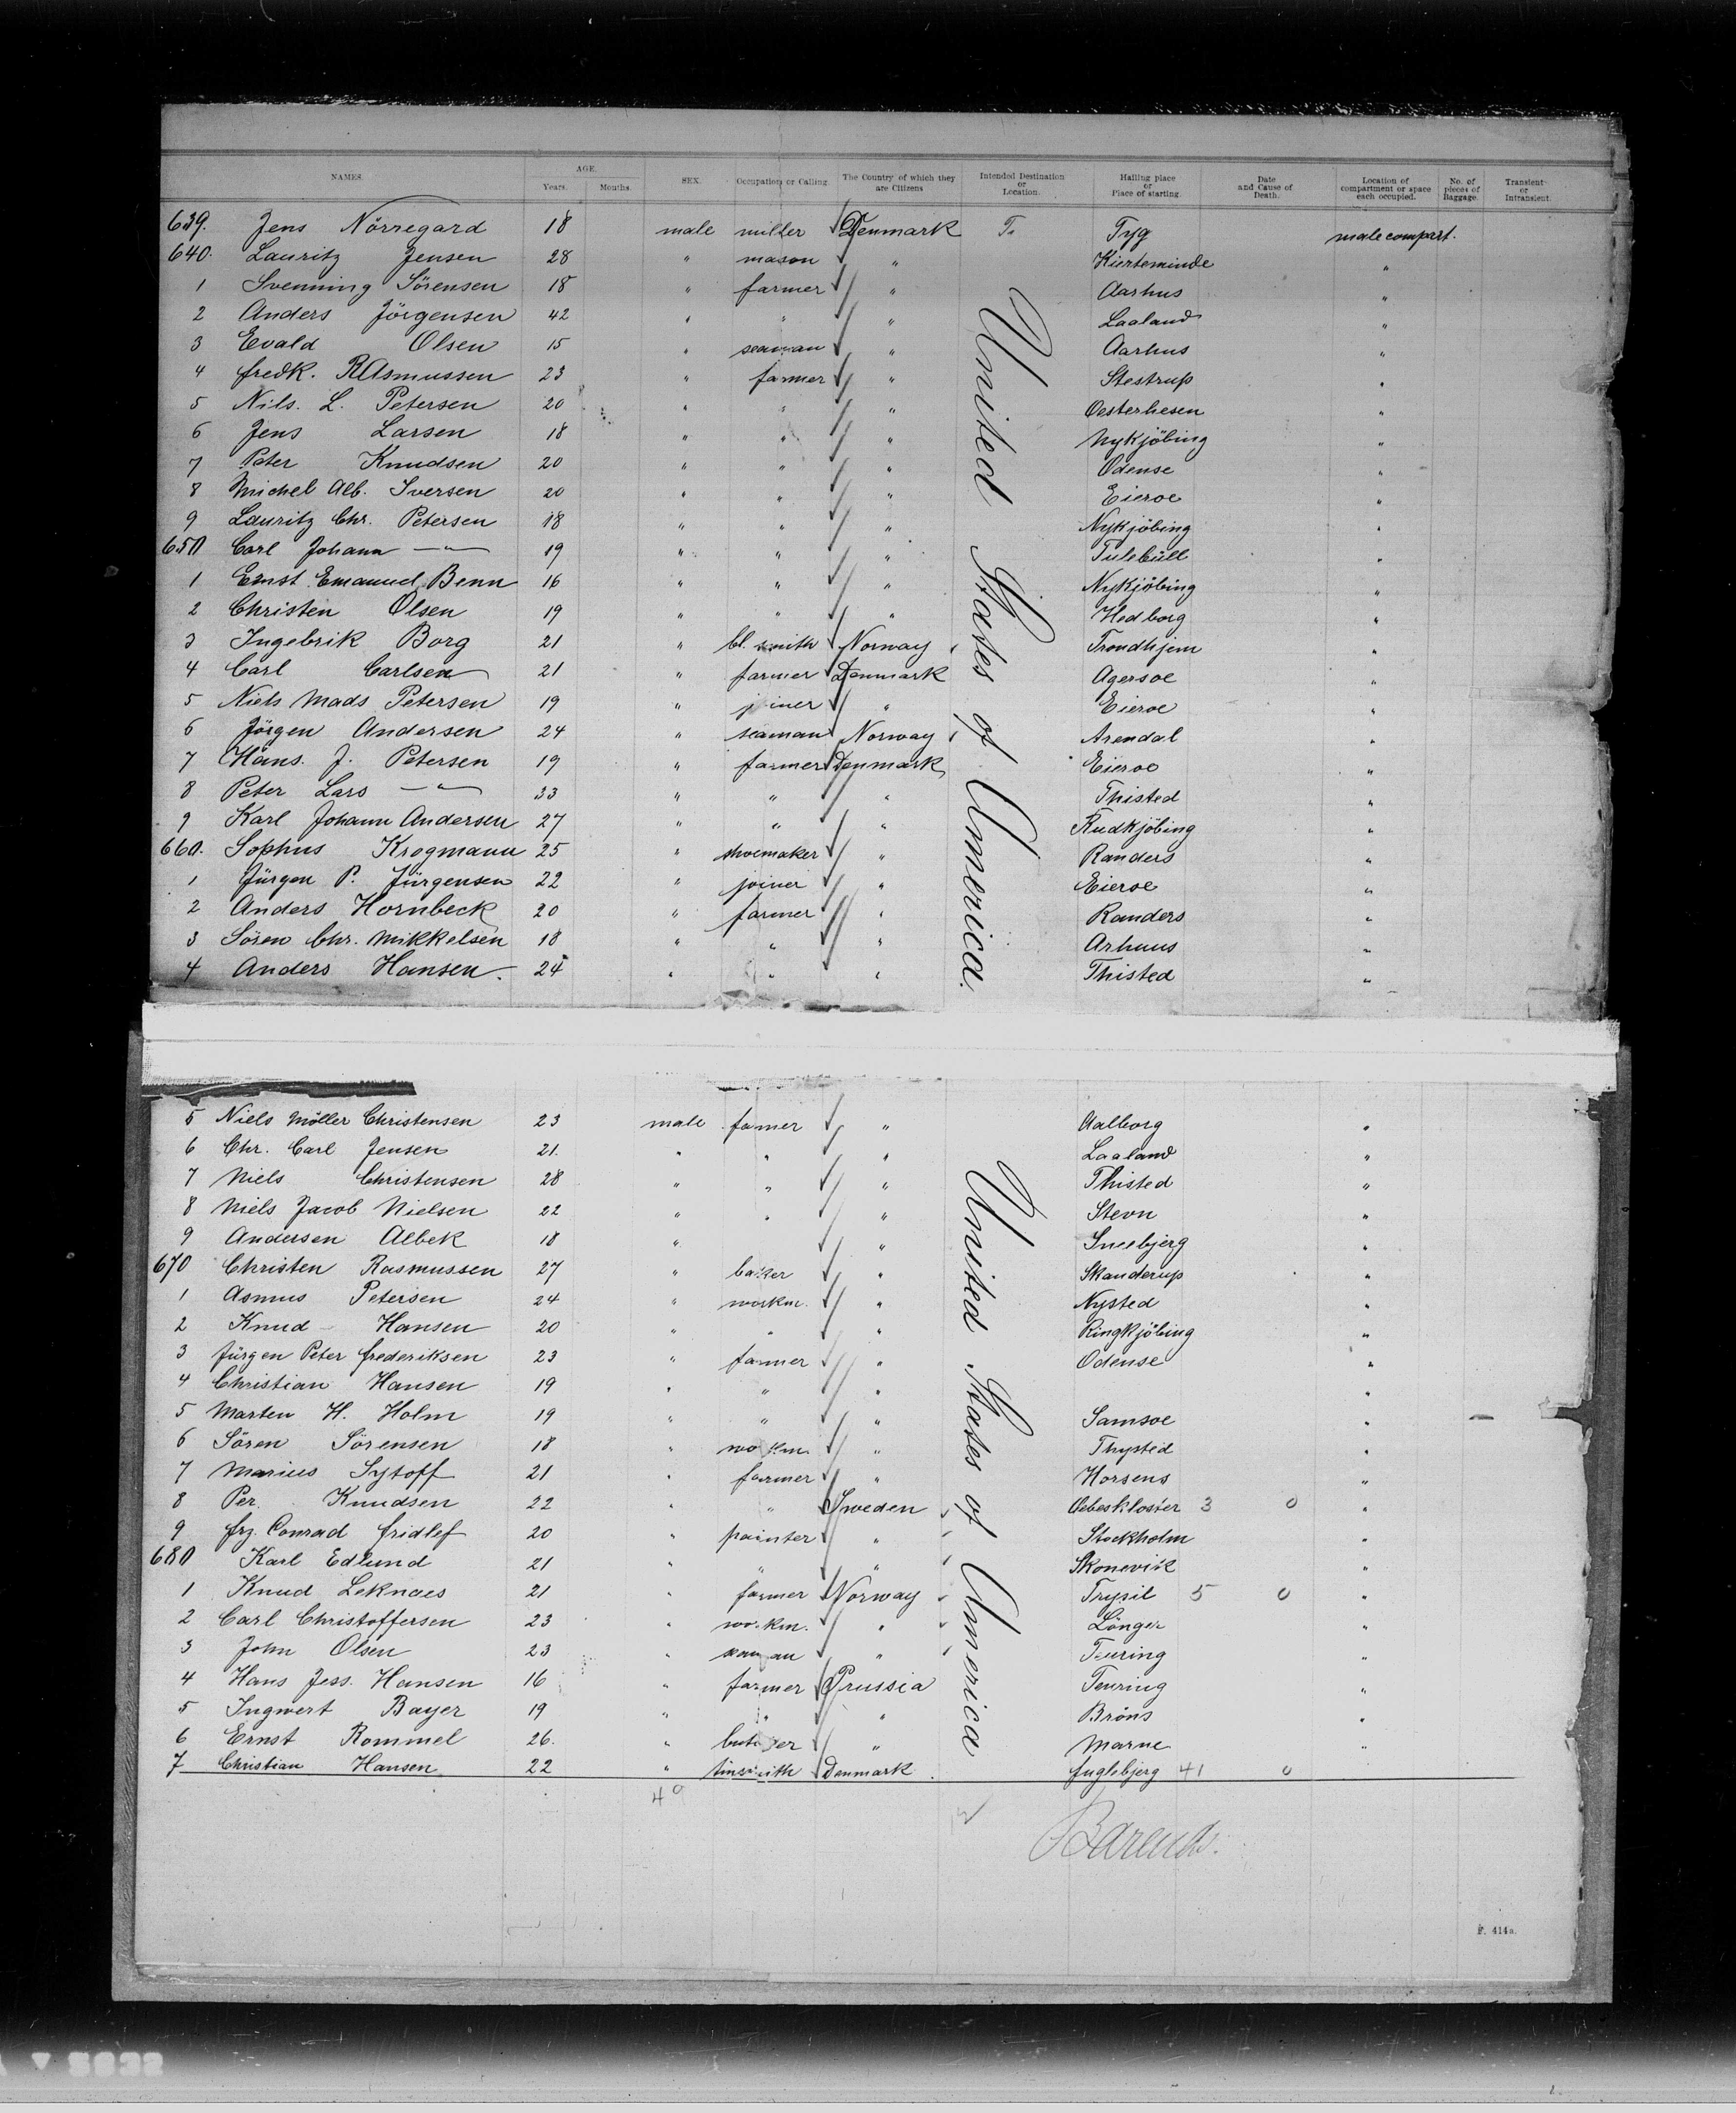 NAMES. AGE. Years. Months. SEX. Occupation or Calling. The Country of which they are Citizens Intended Destination or Location. Hailing place or Place of starting. Date and Cause of Death. Location of compartment or space each occupied. No. of pieces of Baggage. Transient or Intransient.
639. Jens Nörregard 18 male miller Denmark Tyg male compart.
640. Lauritz Jensen 28 " mason " Kierteminde "
1 Svenning Sörensen 18 " farmer " Aarhus "
2 Anders Jörgensen 42 " " " Laaland "
3 Evald Olsen 15 " seaman " Aarhus "
4 fredk. RAsmussen 23 " farmer " Stestrup "
5 Nils. L. Petersen 20 " " " Oesterhesen "
6 Jens Larsen 18 " " " Nykjöbing "
7 Peter Knudsen 20 " " " Odense "
8 Michel Alb. Iversen 20 " " " Eieroe "
9 Lauritz Chr. Petersen 18 " " " Nykjöbing "
650 Carl Johann — " — 19 " " " Tulebüll "
1 Ernst Emanuel Benn 16 " " " Nykjöbing "
2 Christen Olsen 19 " " " Hedborg "
3 Ingebrik Borg 21 " bl. smith Norway Trondhjem "
4 Carl Carlsen 21 " farmer Denmark Agersoe "
5 Niels Mads Petersen 19 " joiner " Eieroe "
6 Jörgen Andersen 24 " seaman Norway Arendal "
7 Hans. J. Petersen 19 " farmer Denmark Eieroe "
8 Peter Lars — " — 33 " " " Thisted "
9 Karl Johann Andersen 27 " " " Rudkjöbing "
660. Sophus Krogmann 25 " shoemaker " Randers "
1 Jürgen P. Jürgensen 22 " joiner " Eieroe "
2 Anders Hornbeck 20 " farmer " Randers "
3 Sören Chr. Mikkelsen 18 " " " Arhuus "
4 Anders Hansen. 24 " " " Thisted "
United States of America.
5 Niels Möller Christensen 23 male farmer " Aalborg "
6 Chr. Carl Jensen 21. " " " Laaland "
7 Niels Christensen 28 " " " Thisted "
8 Niels Jacob Nielsen 22 " " " Stevn "
9 Andersen Albek 18 " " Sneebjerg "
670 Christen Rasmussen 27 " baker " Skanderup "
1 Asmus Petersen 24 " workm. " Nysted "
2 Knud Hansen 20 " " " Ringkjöbing "
3 Jürgen Peter frederiksen 23 " farmer " Odense "
4 Christian Hansen 19 " " " "
5 Marten H. Holm 19 " " " Samsoe "
6 Sören Sörensen 18 " workm. " Thysted "
7 Marius Sytoff 21 " farmer " Horsens "
8 Per. Knudsen 22 " " Sweden Oebeskloster 3 0 "
9 frz. Conrad fridlef 20 " painter " Stockholm "
680 Karl Edlund 21 " " " Skonevik "
1 Knud Leknaes 21 " farmer Norway Trysil 5 0 "
2 Carl Christoffersen 23 " workm. " Länger "
3 John Olsen 23 " seaman " Turing "
4 Hans Jess. Hansen 16 " farmer Prussia Tenring "
5 Ingwert Bayer 19 " " " Bröns "
6 Ernst Rommel 26. " butcher " Marne "
7 Christian Hansen 22 " tinsmith Denmark. fuglebjerg 41 0
United States of America
40
Barends.
F. 414a.